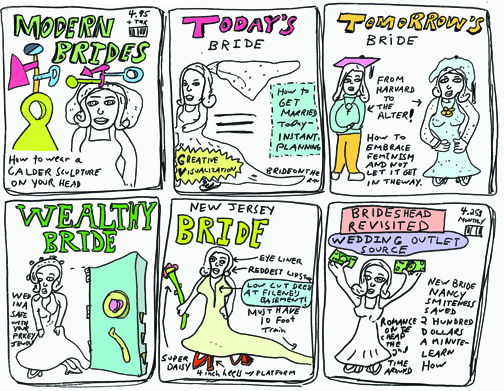 MODERN
BRIDES
4.95
+ TAX
HOW TO WEAR A
CALDER SCULPTURE
ON YOUR HEAD
TODAY'S
BRIDE
HOW TO
GET
MARRIED
TODAY-
INSTANT
PLANNING
CREATIVE
VISUALIZATION
BRIDE ON THE
RUN
TOMORROW'S
BRIDE
FROM
HARVARD
TO THE
ALTER!
HOW TO
EMBRACE
FEMINISM
AND NOT
LET IT GET
IN THE WAY.
WEALTHY
BRIDE
WED
IN A
SAFE
WITH
YOUR
NEW JERSEY
BRIDE
EYE LINER
REDDEST LIPSTICK
LOW CUT DRESS
AT FILENE'S
BASEMENT!
MUST HAVE
10 FOOT
TRAIN
SUPER
DAISY
4 INCH HEELS
PLATFORM
BRIDESHEAD
REVISITED
4.25$
MONTHLY
WEDDING OUTLET
SOURCE
ROMANCE
ON THE
CHEAP THE
2nd
TIME
AROUND
NEW BRIDE
NANCY
SMITENESS
SAVED
2 HUNDRED
DOLLARS
A MINUTE-
LEARN
HOW